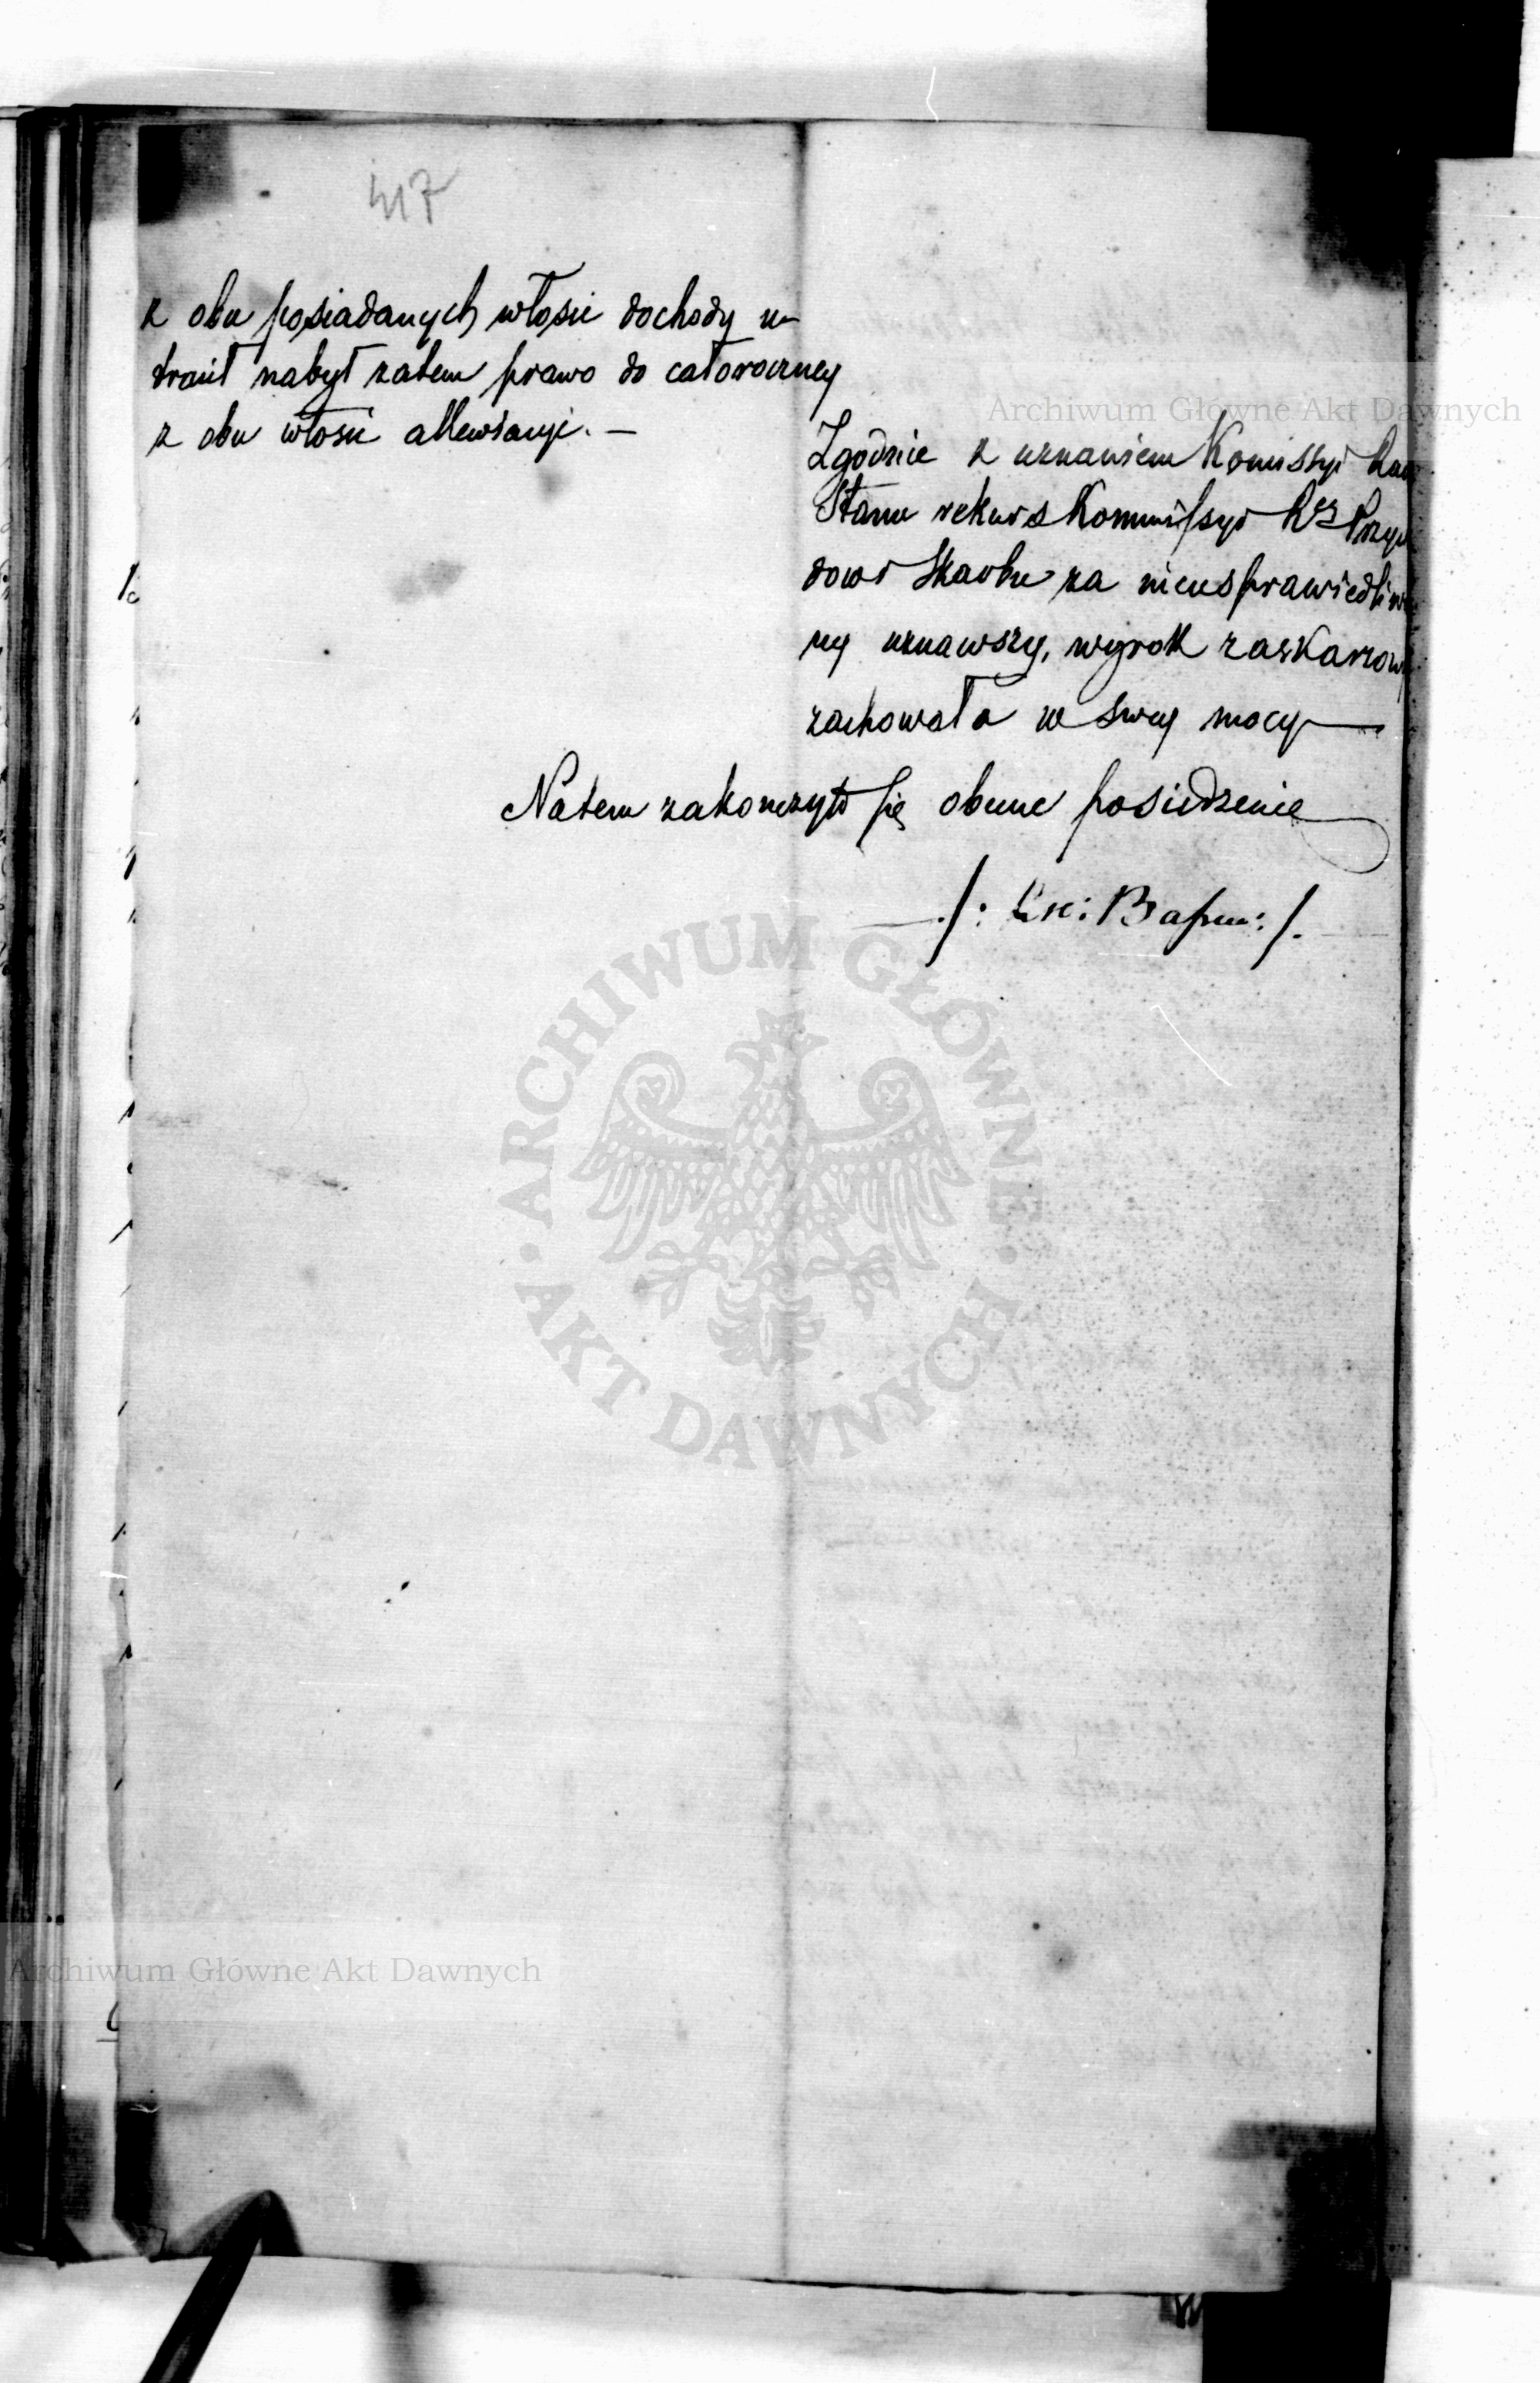 417
z obu posiadanych włości dochody u-
tracił nabył zatem prawo do całoroczney
z obu włości allewiacyi. —
Archiwum Główne Akt Dawnych
Zgodnie z uznaniem Komissyi
Stanu rekurs Kommissyi Rz Przy
dowi Skarbu za nieusprawiedliwio
ny uznawszy, wyrok zaskarzon
zachowała w swey mocy —
Natem zakonczyło się obecne posiedzenie
ARCHIWUM GŁÓWNE
AKT DAWNYCH
Archiwum Główne Akt Dawnych